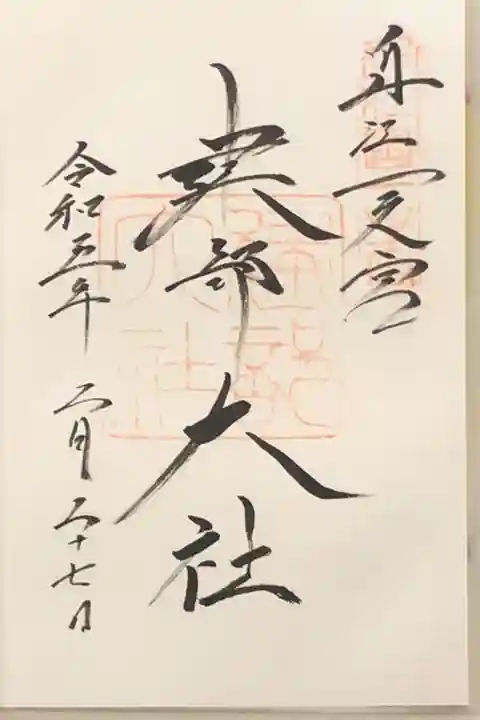 近江一之宮
建部大社
令和五年 二月二十七日